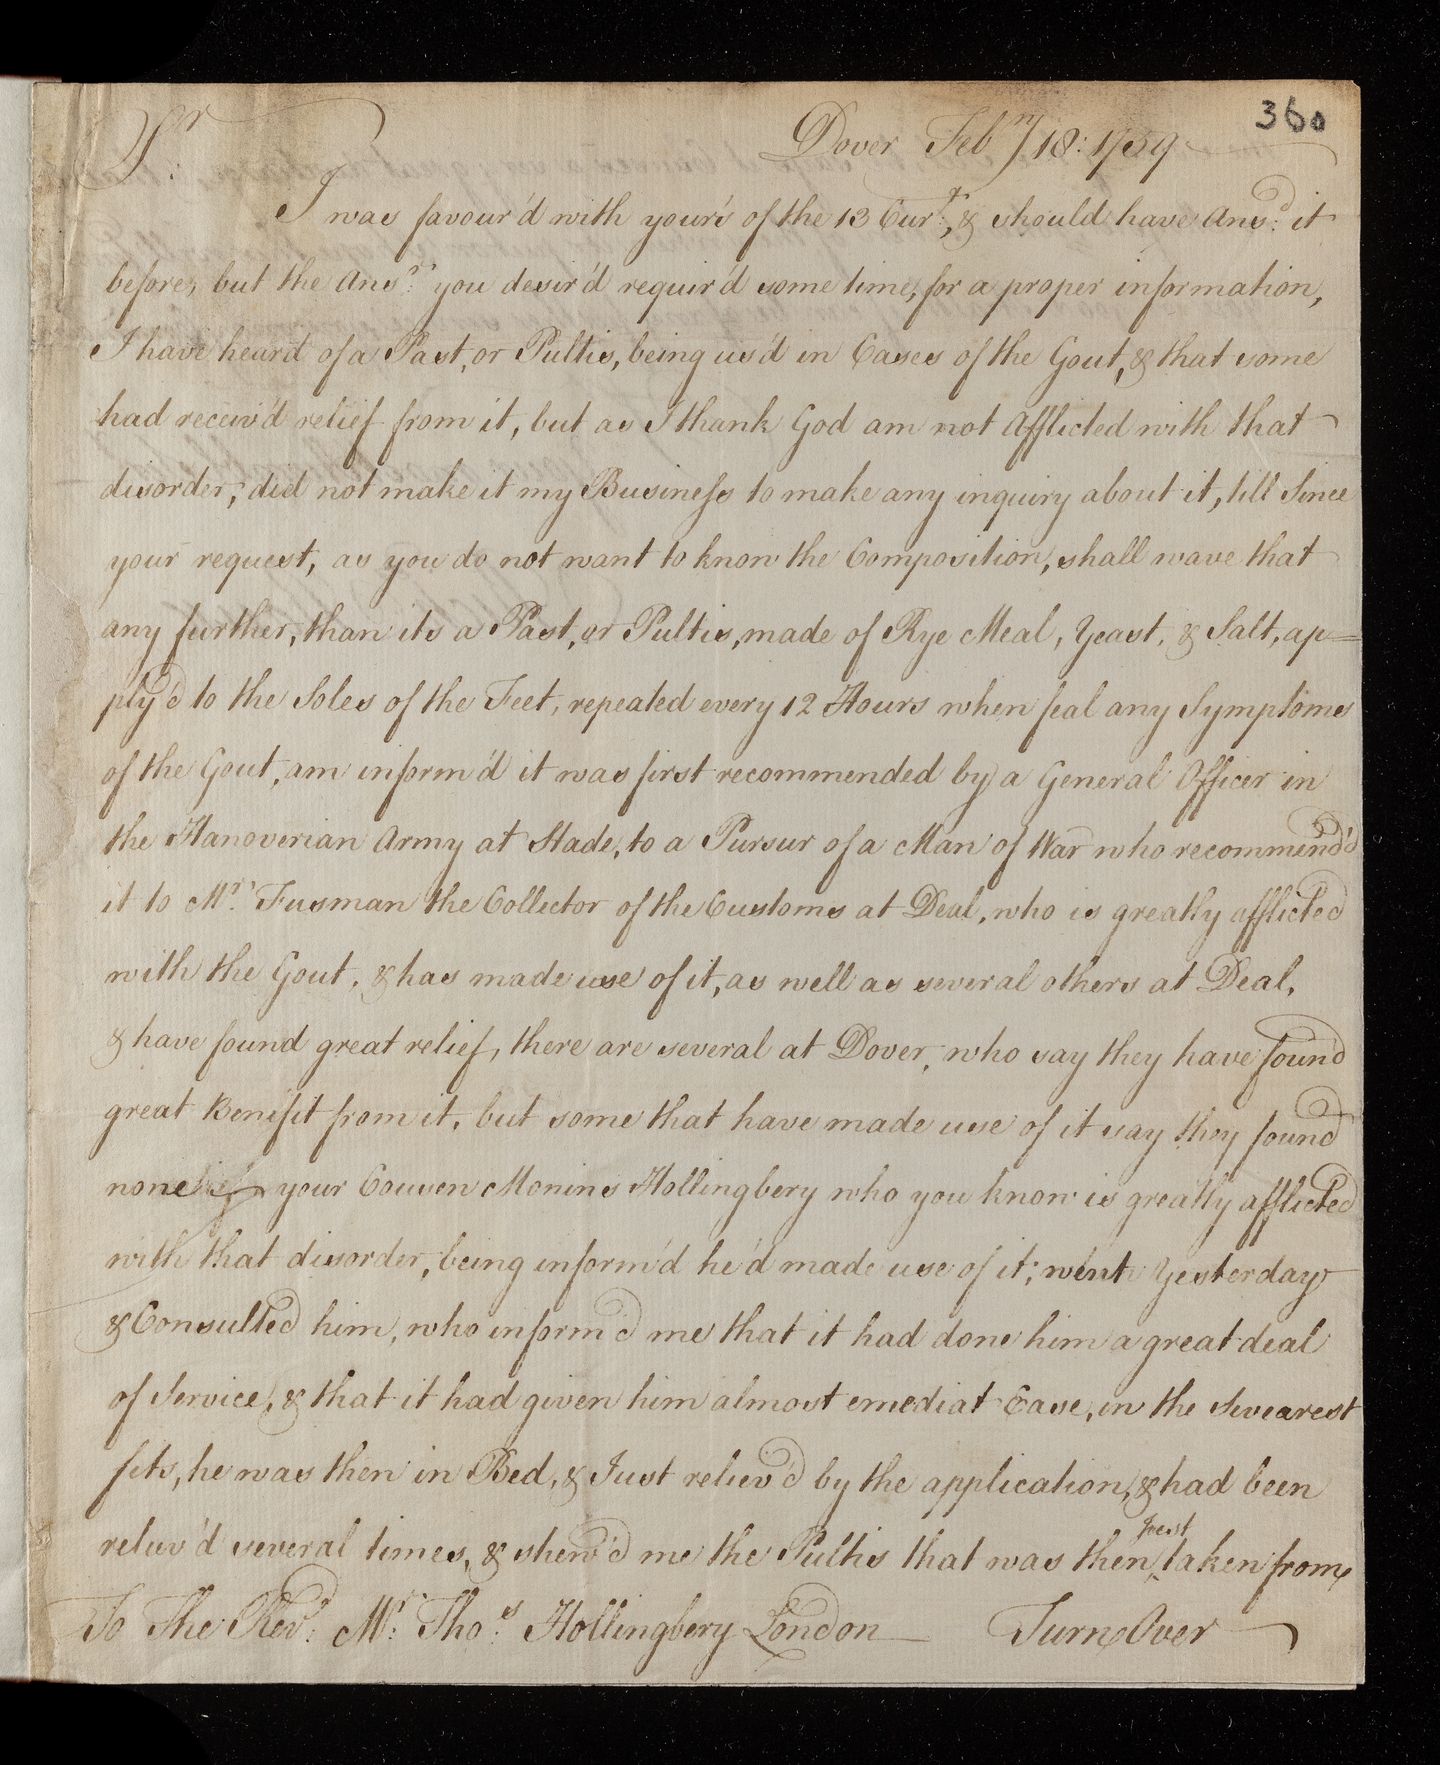 360
Sr. Dover Febry 18: 1759
I was favour'd with your's of the 13 Curt:, & should have Ansd: it
before, but the Ansr: you desir'd requir'd some time, for a proper information,
I have heard of a Past, or Pultis, being us'd in Cases of the Gout, & that some
had receiv'd relief from it, but as I thank God am not Afflicted with that
disorder, did not make it my Business to make any inquiry about it, till Since
your request, as you do not want to know the Composition, shall wave that
any further, than its a Past, or Pultis, made of Rye Meal, Yeast, & Salt, ap=
ply'd to the Soles of the Feet, repeated every 12 Hours when feal any Symptoms
of the Gout, am inform'd it was first recommended by a General Officer in
the Hanoverian Army at Stade, to a Pursur of a Man of War who recommend'd
it to Mr: Fusman the Collector of the Customs at Deal, who is greatly afflicted
with the Gout, & has made use of it, as well as several others at Deal,
& have found great relief, there are several at Dover, who say they have found
great Benifit from it, but some that have made use of it say they found
none your Cousen Monins Hollingbery who you know is greatly afflicted
with that disorder, being inform'd he'd made use of it; went Yesterday
& Consulted him, who inform'd me that it had done him a great deal
of Service, & that it had given him almost emediat Ease, in the Sevearest
fits, he was then in Bed, & Just reliev'd by the application, & had been
reliev'd several times, & shew'd me the Pultis that was then just taken from
To The Revd: Mr: Thos: Hollingbery London Turn Over